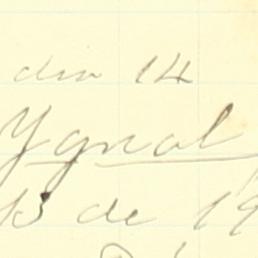 dia 14
Ygnal
13 de 19